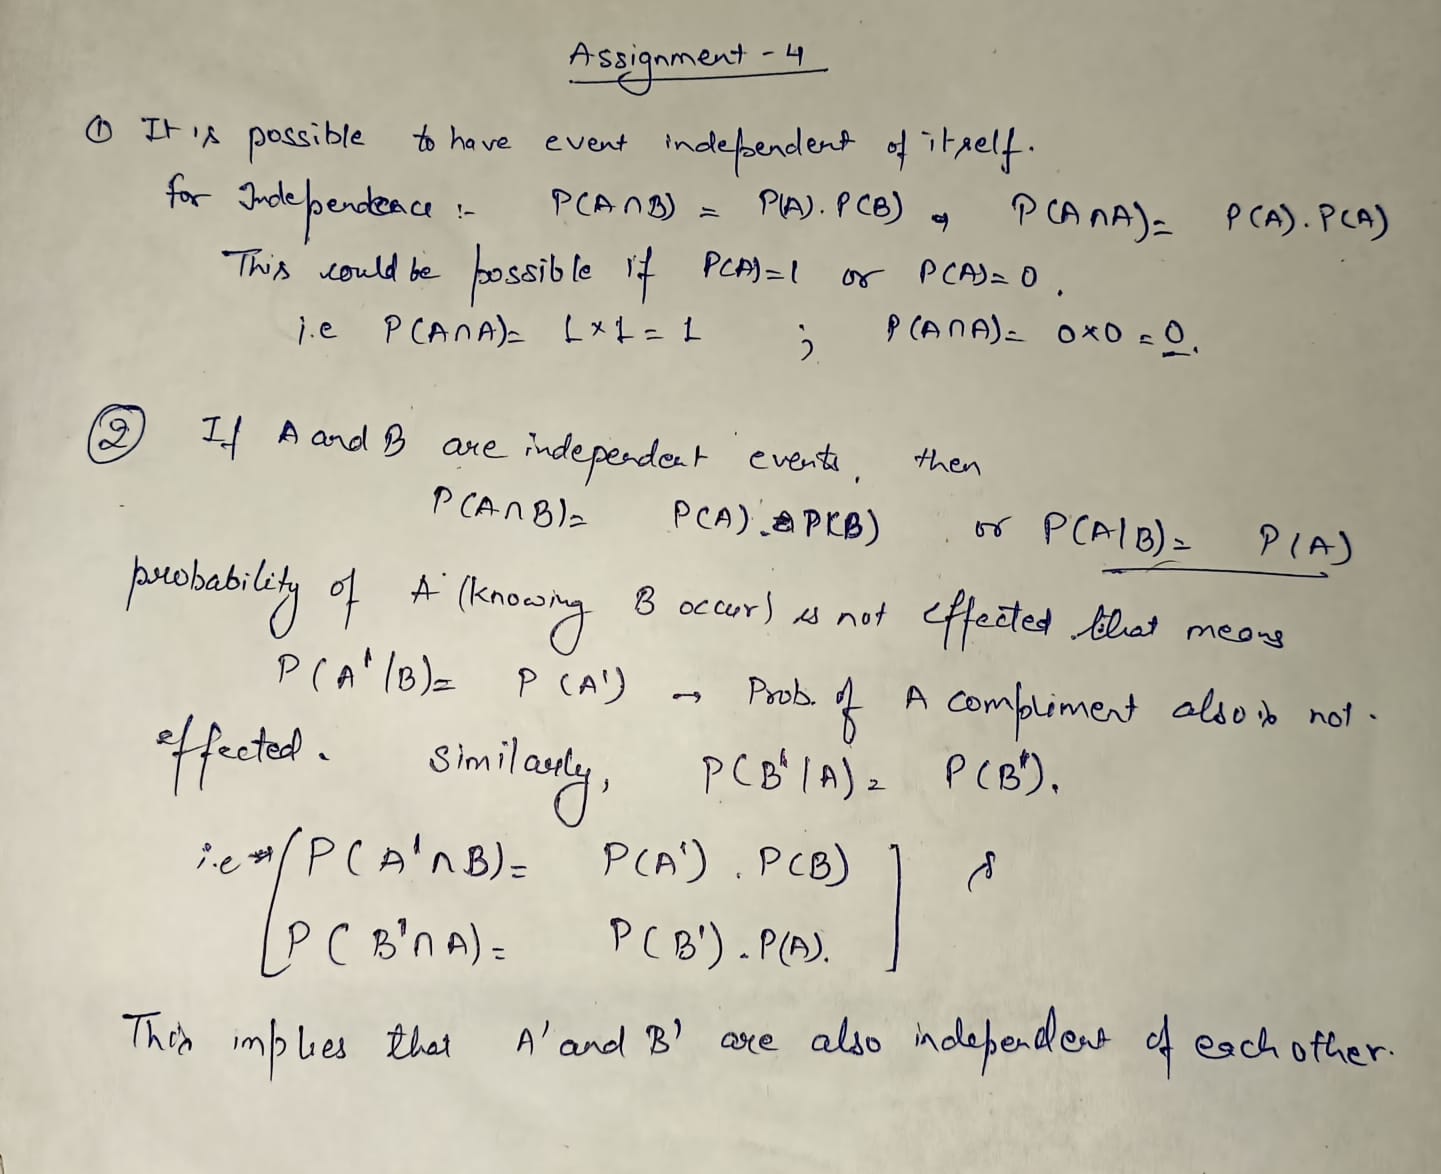 Assignment - 4
① It is possible to have event independent of itself.
for Independence :- P(A∩B) = P(A). P(B) P(A∩A) = P(A). P(A)
This could be possible if P(A)=1 or P(A)=0.
i.e P(A∩A)= 1×1 = 1 ; P(A∩A)= 0×0 = 0.
② If A and B are independent events, then
P(A∩B)= P(A). P(B) or P(A|B)= P(A)
probability of A (knowing B occur) is not effected that means
P(A'/B)= P(A') → Prob. of A compliment also is not.
effected. Similarly, P(B'|A)= P(B').
i.e [P(A'∩B)= P(A'). P(B)
P(B'∩A)= P(B'). P(A).]
This implies that A' and B' are also independent of each other.